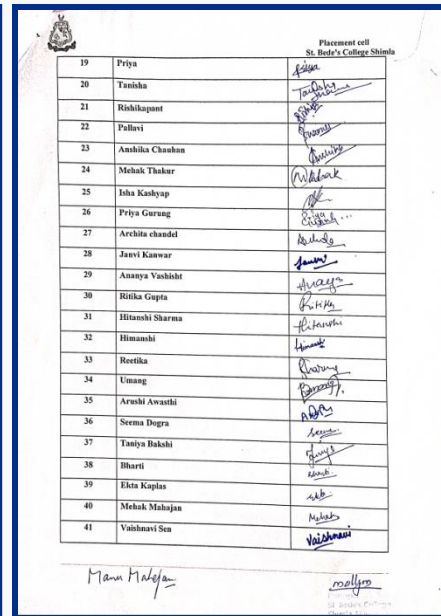 Placement cell
St. Bede's College Shimla
19 Priya Priya
20 Tanisha Tanisha Sharma
21 Rishikapant
22 Pallavi
23 Anshika Chauhan Anshika
24 Mehak Thakur Mehak
25 Isha Kashyap
26 Priya Gurung Priya Gurung
27 Archita chandel
28 Janvi Kanwar Janvi
29 Ananya Vashisht Ananya
30 Ritika Gupta Ritika
31 Hitanshi Sharma Hitanshi
32 Himanshi Himanshi
33 Reetika
34 Umang
35 Arushi Awasthi
36 Seema Dogra Seema
37 Taniya Bakshi
38 Bharti Bharti
39 Ekta Kaplas Ekta
40 Mehak Mahajan Mehak
41 Vaishnavi Sen Vaishnavi
Manu Mahajan